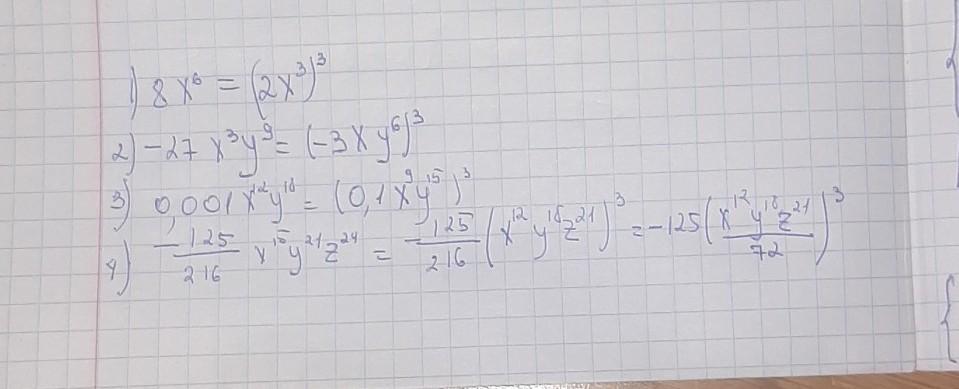 1) 8x⁶ = (2x³)³
2) -27x³y⁹ = (-3xy⁶)³
3) 0,001x¹²y¹⁸ = (0,1x⁹y¹⁵)³
4) -125/216 x¹⁵y²¹z²⁴ = -125/216 (x¹²y¹⁸z²¹)³ = -125(x¹²y¹⁸z²¹/72)³